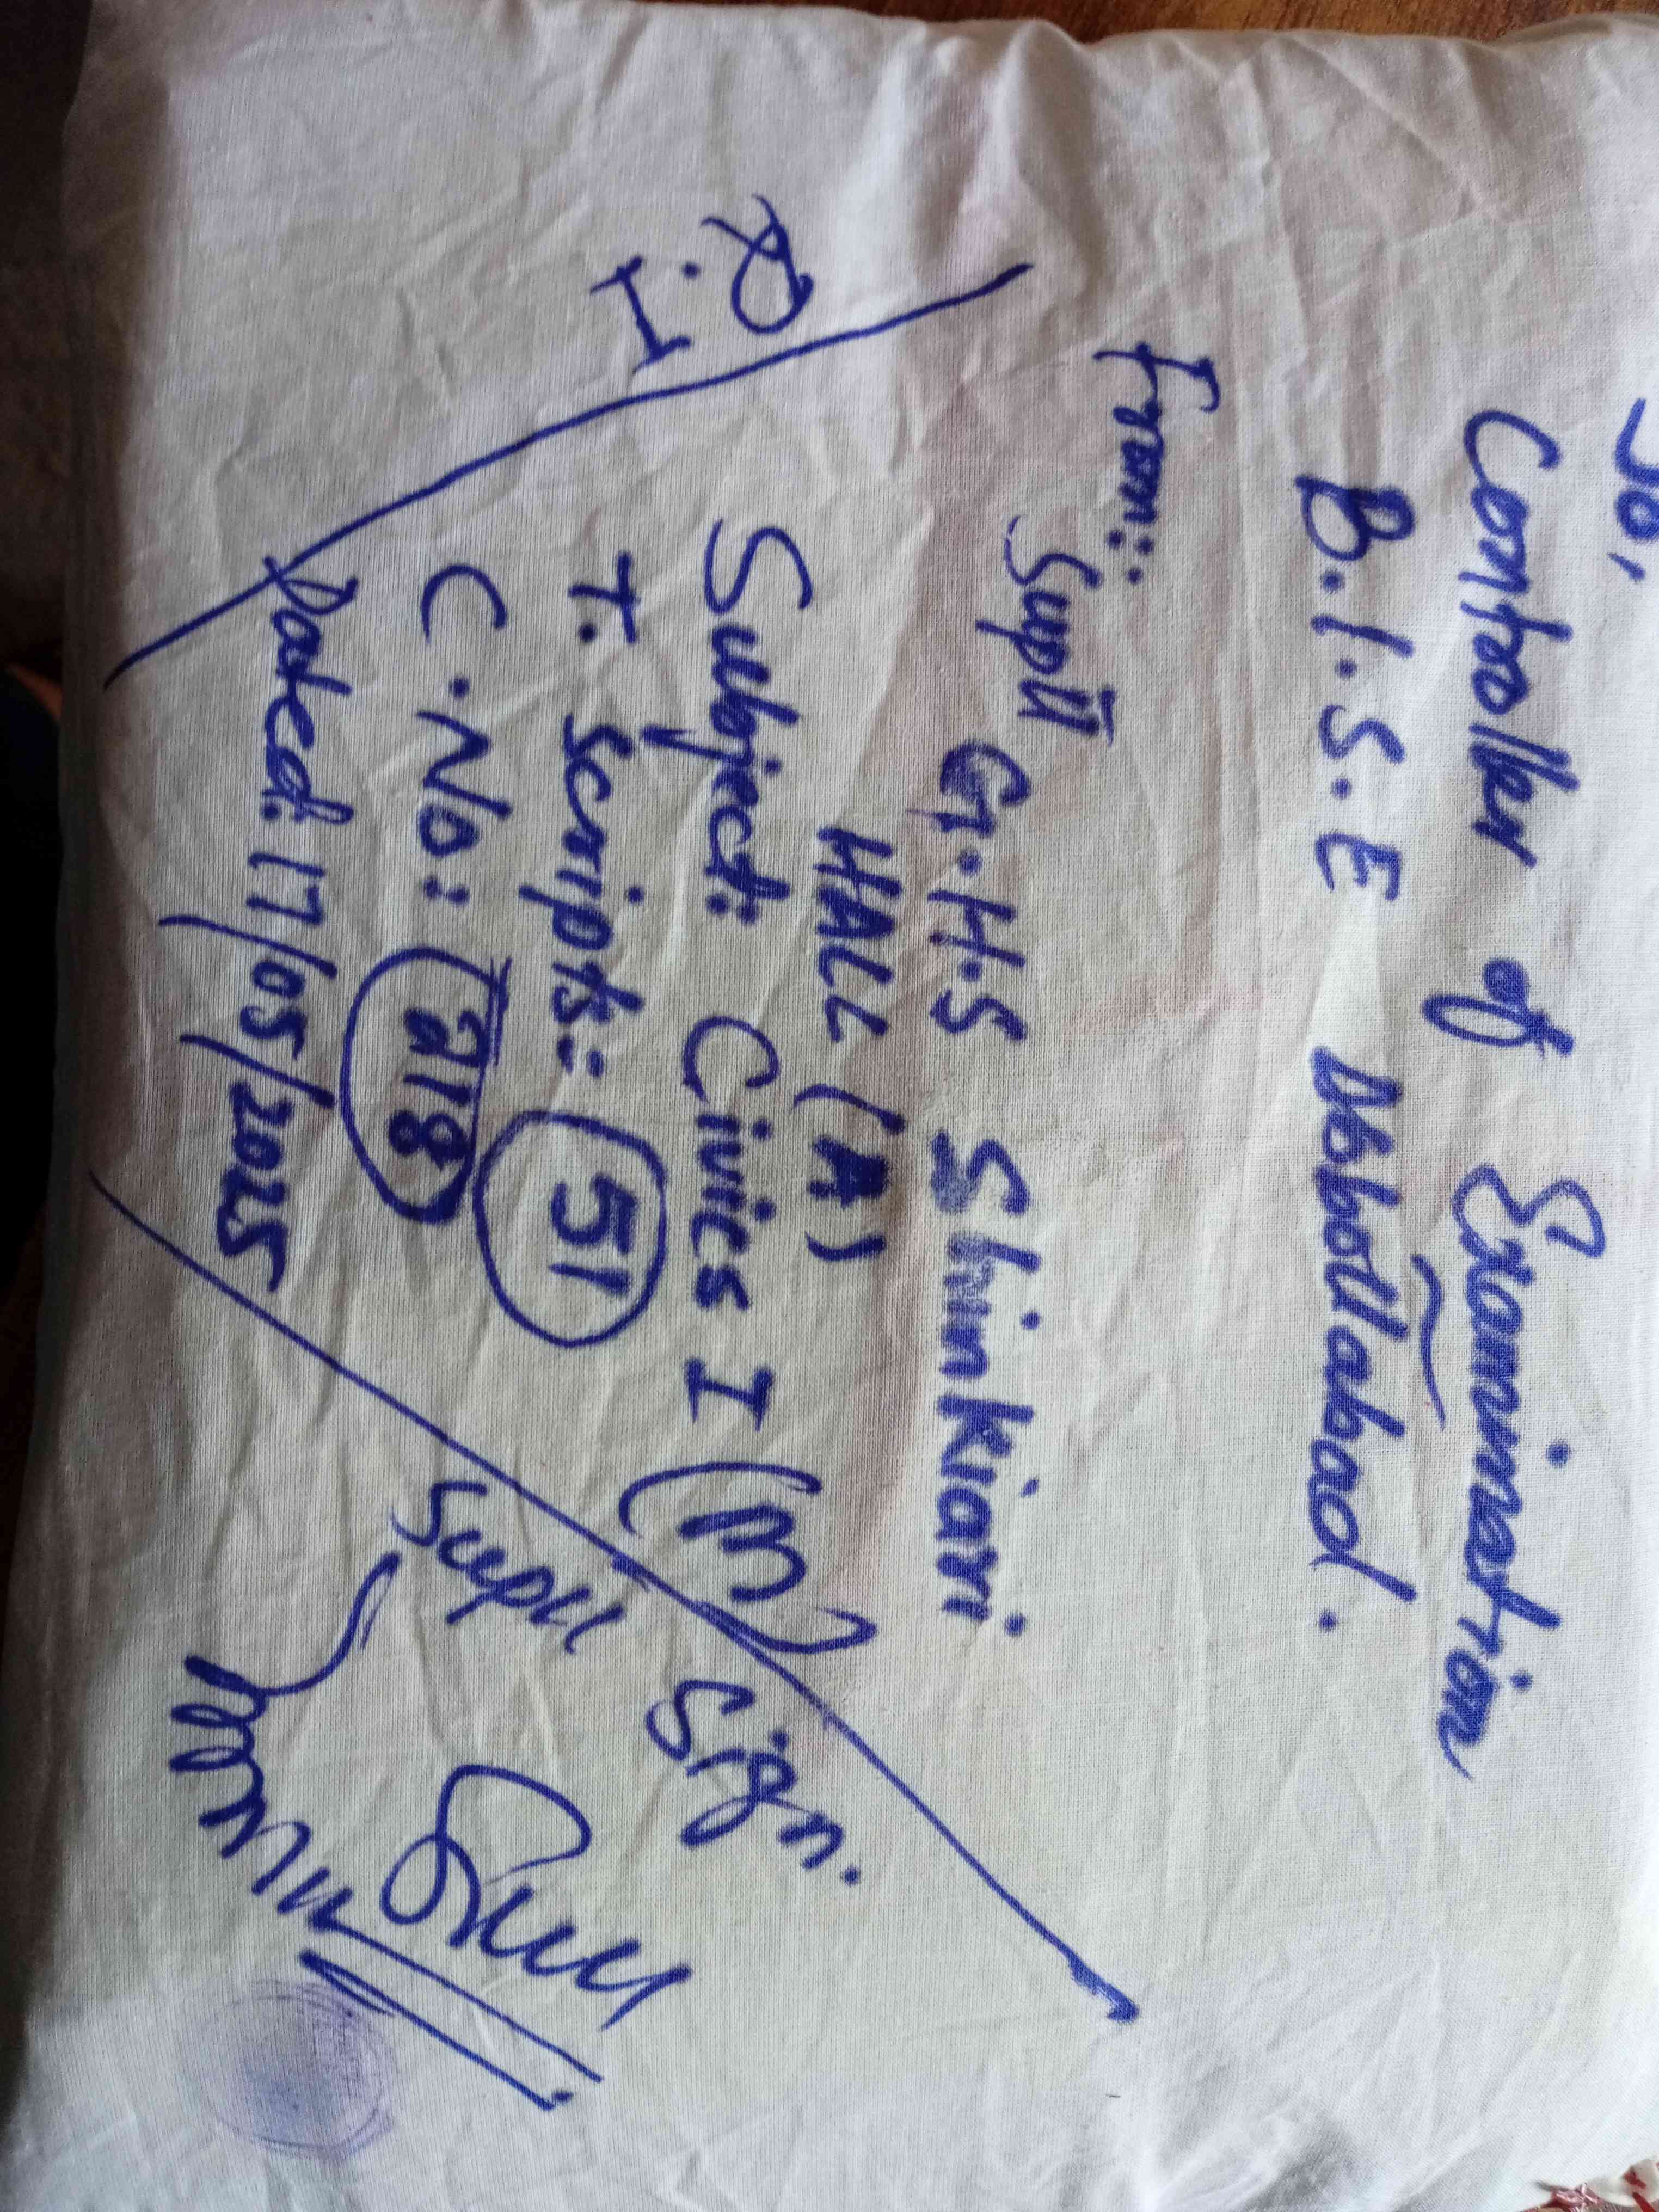 To,
Controller of Examination
B.I.S.E Abbottabad.
From: Supdt
G.H.S Shinkiari
HALL (A)
Subject: Civics I (M)
T. Scripts: 51
C.No: 218
Dated: 17/05/2025
R.I
Supdt Sign.